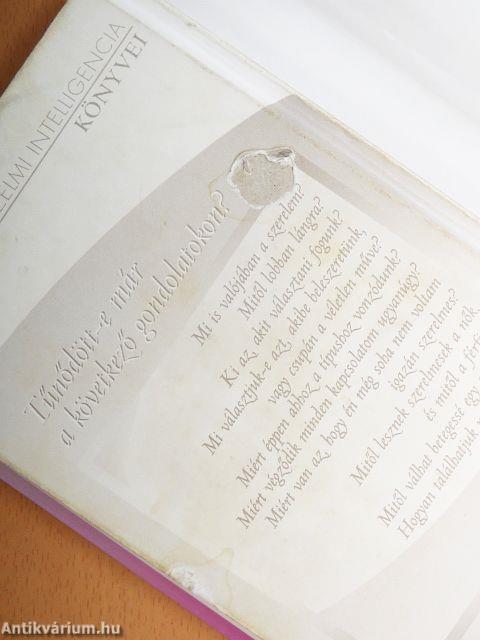 ELMI INTELLIGENCIA
KÖNYVEI
Tűnődött-e már
a következő gondolatokon?
Mi is valójában a szerelem?
Mitől lobban lángra?
Ki az, akit választani fogunk?
Mi választjuk-e azt, akibe beleszeretünk,
vagy csupán a véletlen műve?
Miért éppen ahhoz a típushoz vonzódunk?
Miért végződik minden kapcsolatom ugyanúgy?
Miért van az, hogy én még soha nem voltam
igazán szerelmes?
Mitől lesznek szerelmesek a nők
és mitől a férfi
Mitől válhat betegessé egy
Hogyan találhatjuk
Antikvárium.hu